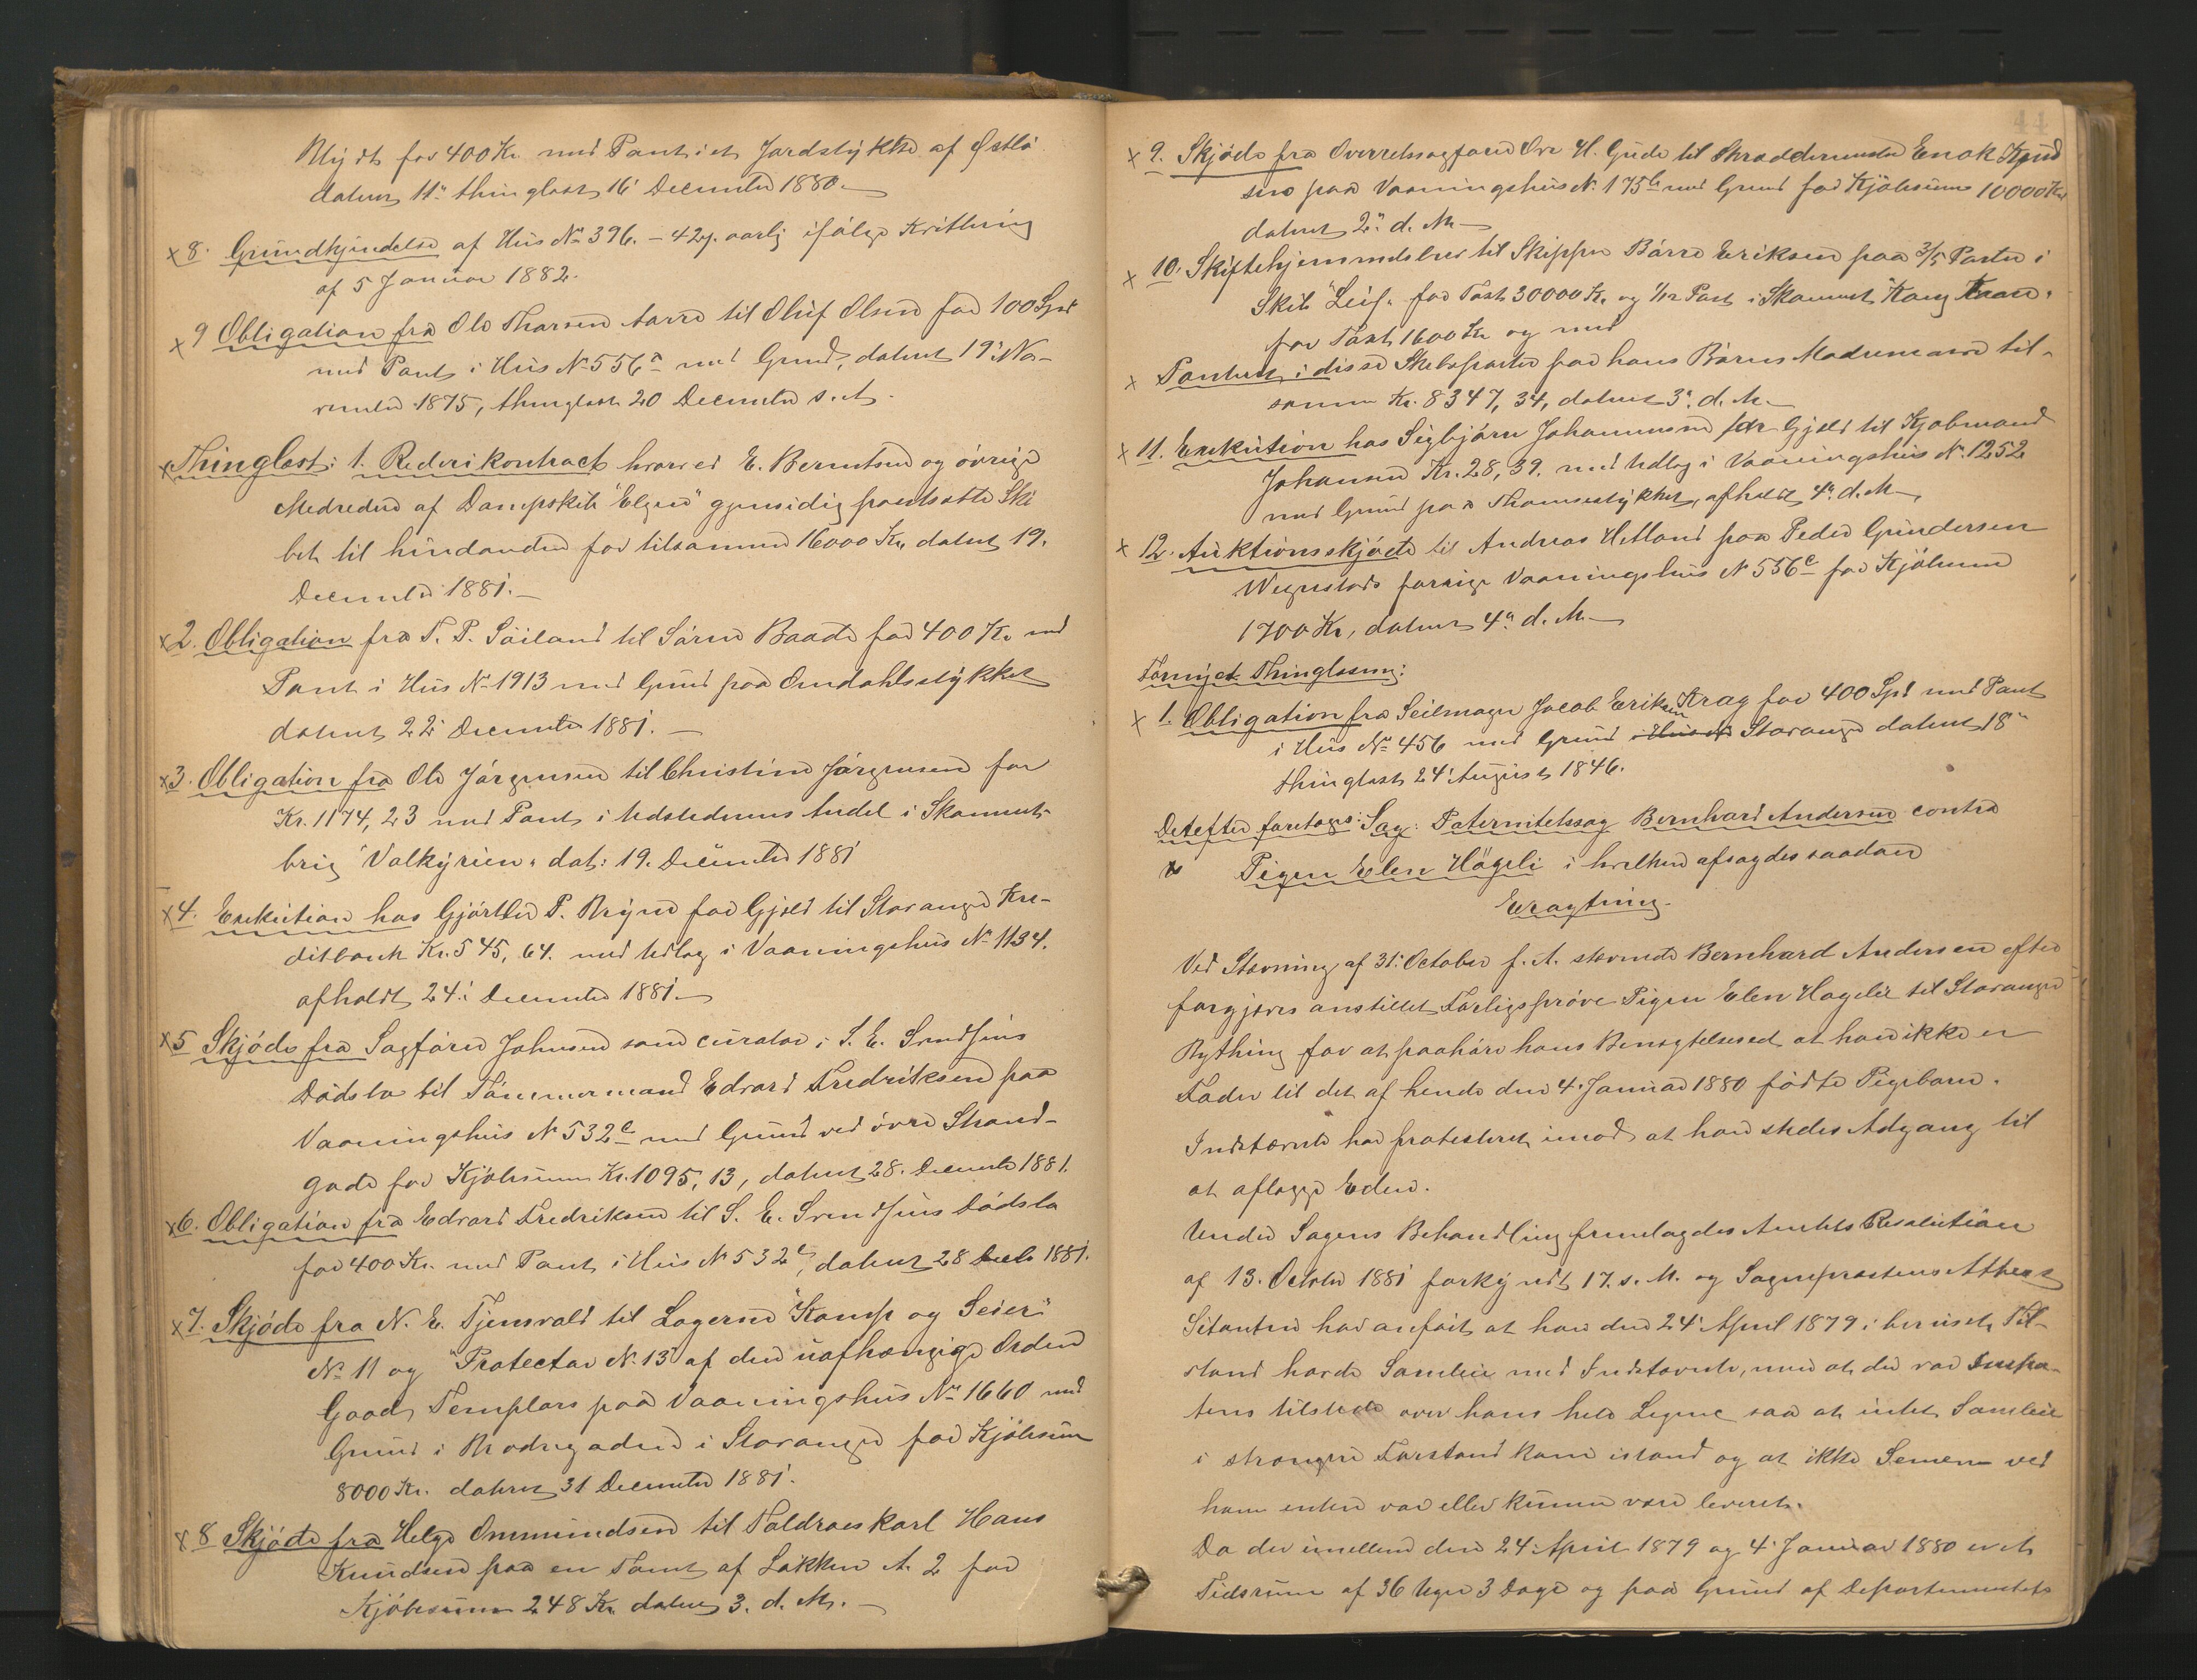 Blydt for 400 Kr. med Pant i et Jordstykke af Østbø
datert 11te thinglæst 16 December 1880.
x 8. Grundkjendelse af Hus No 396. - 42 . aarlig ifølge Kvittering
af 5 Januar 1882.
x 9 Obligation fra Ole Tharsen Aarre til Oluf Olsen for 100 Spd
med Pant i Hus No 556a med Grund, datert 19 No-
vember 1875, thinglæst 20 December s. A.
x Thinglæst: 1. Rederikontract hvorved E. Berentsen og øvrige
Medredere af Dampskib "Elgen" gjensidig pantsætte Ski
bet til hinanden for tilsammen 16000 Kr. datert 19.
December 1881.
x 2. Obligation fra T. P. Søiland til Søren Baade for 400 Kr. med
Pant i Hus No 1913 med Grund paa Omdahlsstykket
datert 22 December 1881.
x 3. Obligation fra Ole Jørgensen til Christine Jørgensen for
Kr. 1174, 23 med Pant i Udstederens Andel i Skonnert-
brig "Valkyrien" dat: 19. December 1881
x 4. Exekution hos Gjørtler P. Bryne for Gjæld til Stavanger Kre-
ditbank Kr. 545, 64. med Udlæg i Vaaningshus No 1134.
afholdt 24. December 1881.
x 5 Skjøde fra Sagfører Johnsen som curator i S. E. Svendsens
Dødsbo til Tømmermand Edvard Fredriksen paa
Vaaningshus No 532c med Grund ved øvre Strand-
gade for Kjøbesum Kr. 1095, 13, datert 28. December 1881.
x 6. Obligation fra Edvard Fredriksen til S. E. Svendsens Dødsbo
for 400 Kr. med Pant i Hus No 532c, datert 28 Decb 1881.
x 7. Skjøde fra N. E. Tjensvold til Logerne "Kamp og Seier"
No 11 og "Protector No 13" af den uafhængige Orden
Good Templars paa Vaaningshus No 1660 med
Grund i Brødregaden i Stavanger for Kjøbesum
8000 Kr. datert 31 December 1881.
x 8 Skjøde fra Helge Ommundsen til Toldroeskarl Hans
Knudsen paa en Tomt af Løkken A. 2 for
Kjøbesum 248 Kr. datert 3. d. M.
44
x 9. Skjøde fra Overretssagfører Ove H. Gude til Skræddermester Enok Knud
sen paa Vaaningshus No 175b med Grund for Kjøbesum 10000 Kr
datert 2. d. M.
x 10. Skiftehjemmelsbrev til Skipper Børre Eriksen paa 3/5 Parter i
Skib "Leif" for Taxt 30000 Kr. og 1/12 Part i Skonnert "Kong Kaan"
for Taxt 1600 Kr og med
x Panteret i disse Skibsparter for hans Børns Mødrenearv til-
sammen Kr. 8347, 34, datert 3. d. M.
x 11. Exekution hos Sigbjørn Johannesen for Gjæld til Kjøbmand
Johansen Kr. 28, 39. med Udlæg i Vaaningshus No 1252
med Grund paa Thomsestykket, afholdt 4. d. M.
x 12. Auktionsskjøde til Andreas Helland paa Peder Gundersen
Wegnstads forrige Vaaningshus No 556c for Kjøbesum
1700 Kr, datert 4. d. M.
Fornyet Thinglæsning:
x 1. Obligation fra Seilmager Jacob Eriksen Krag for 400 Spd med Pant
i Hus No 456 med Grund i Hus No Stavanger datert 18
thinglæst 24 August 1846.
Derefter foretoges: Sag: Paternitetssag Bernhard Andersen contra
x Pigen Elen Høgeli i hvilken afsagdes saadan
Eragtning.
Ved Stævning af 31. October f. A. stævnede Bernhard Andersen efter
forgjæves anstillet Forligsprøve Pigen Elen Hageli til Stavanger
Bything for at paahøre hans Benægtelsesed at han ikke er
Fader til det af hende den 4. Januar 1880 fødte Pigebarn.
Indstævnte har protesteret imod at han stedes Adgang til
at aflægge Eden.
Under Sagens Behandling fremlagdes Amtets Resolution
af 13. October 1881 forkyndt 17. s. M. og Sognepræstens Attest
Citanten har anført at han den 24 April 1879 i beruset Til-
stand havde Samleie med Indstævnte, men at der var
tens tilstede over hans hele Legeme saa at intet Samleie
i strængere Forstand kom istand og at ikke Semen ved
ham enten var eller kunne være leveret.
Da der imellem den 24 April 1879 og 4 Januar 1880 er et
Tidsrum af 36 Uger 3 Dage og paa Grund af Departementets